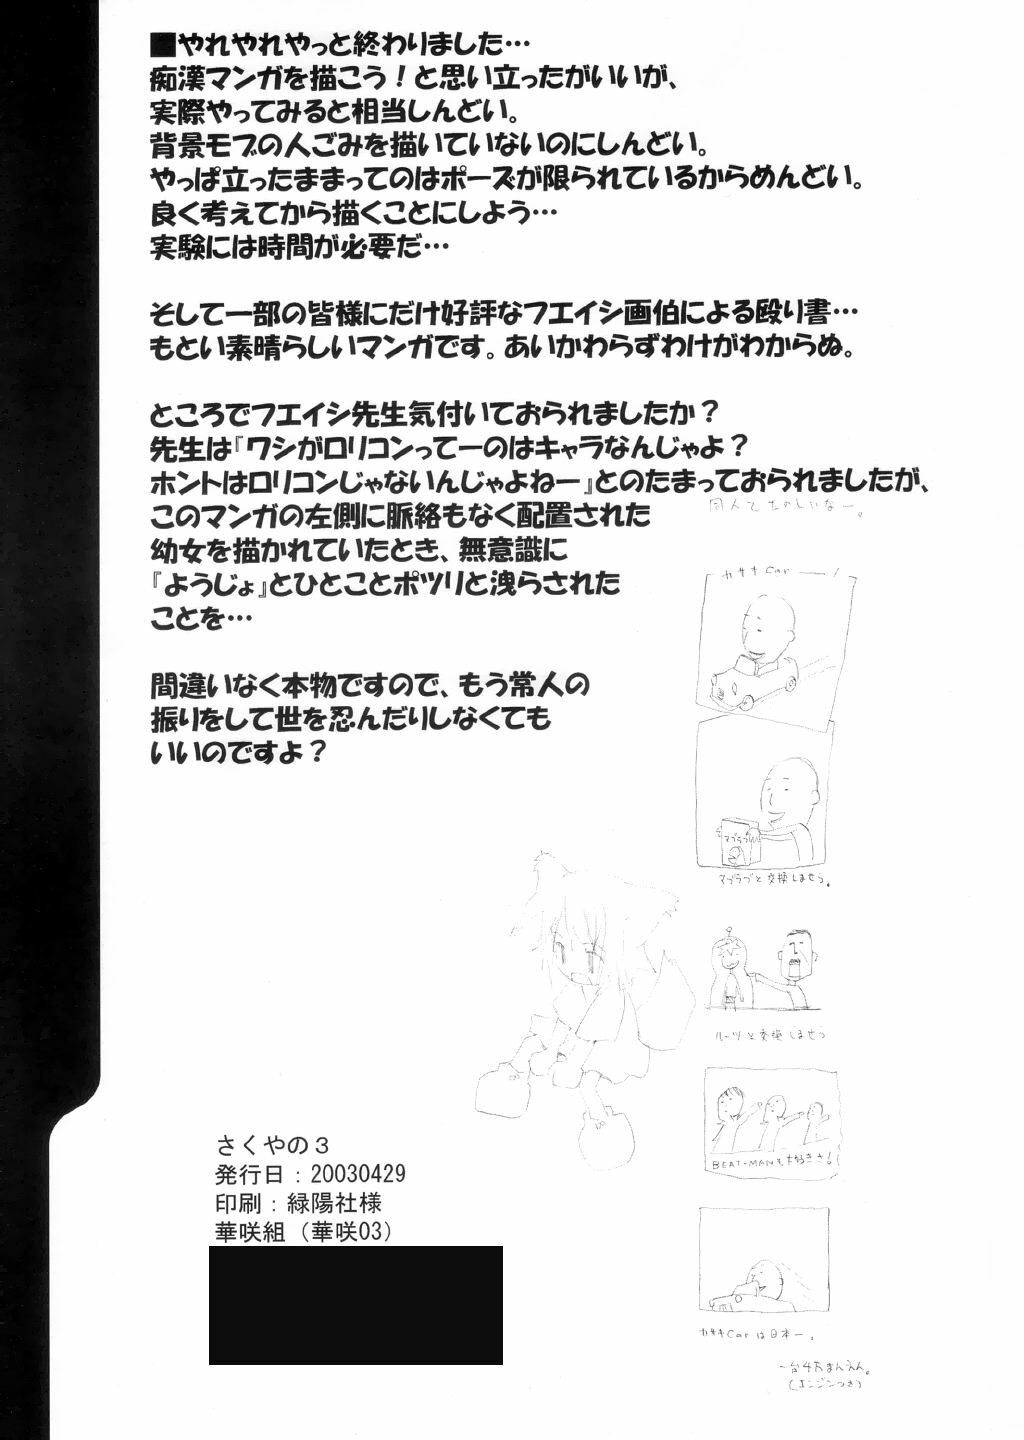 ■やれやれやっと終わりました…
痴漢マンガを描こう！と思い立ったがいいが、
実際やってみると相当しんどい。
背景モブの人ごみを描いていないのにしんどい。
やっぱ立ったままってのはポーズが限られているからめんどい。
良く考えてから描くことにしよう…
実験には時間が必要だ…
そして一部の皆様にだけ好評なフエイシ画伯による殴り書…
もとい素晴らしいマンガです。あいかわらずわけがわからぬ。
ところでフエイシ先生気付いておられましたか？
先生は『ワシがロリコンってーのはキャラなんじゃよ？
ホントはロリコンじゃないんじゃよねー』とのたまっておられましたが、
このマンガの左側に脈絡もなく配置された
幼女を描かれていたとき、無意識に
『ようじょ』とひとことポツリと洩らされた
ことを…
間違いなく本物ですので、もう常人の
振りをして世を忍んだりしなくても
いいのですよ？
同人てたのしいなー。
カサキCar ――！
マブラブ
マブラブと交換しませう。
ルーツと交換しませう
BEAT-MANも大好きさ！
カサキCarは日本一。
一台4万まんえん。
（エンジンつき）
さくやの３
発行日：20030429
印刷：緑陽社様
華咲組（華咲03）